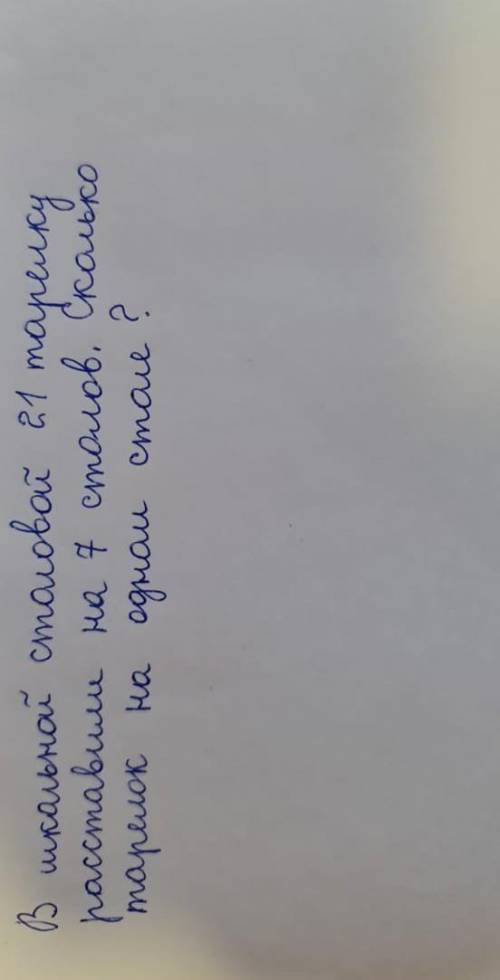 В школьной столовой 21 тарелку
расставили на 7 столов. Сколько
тарелок на одном столе?